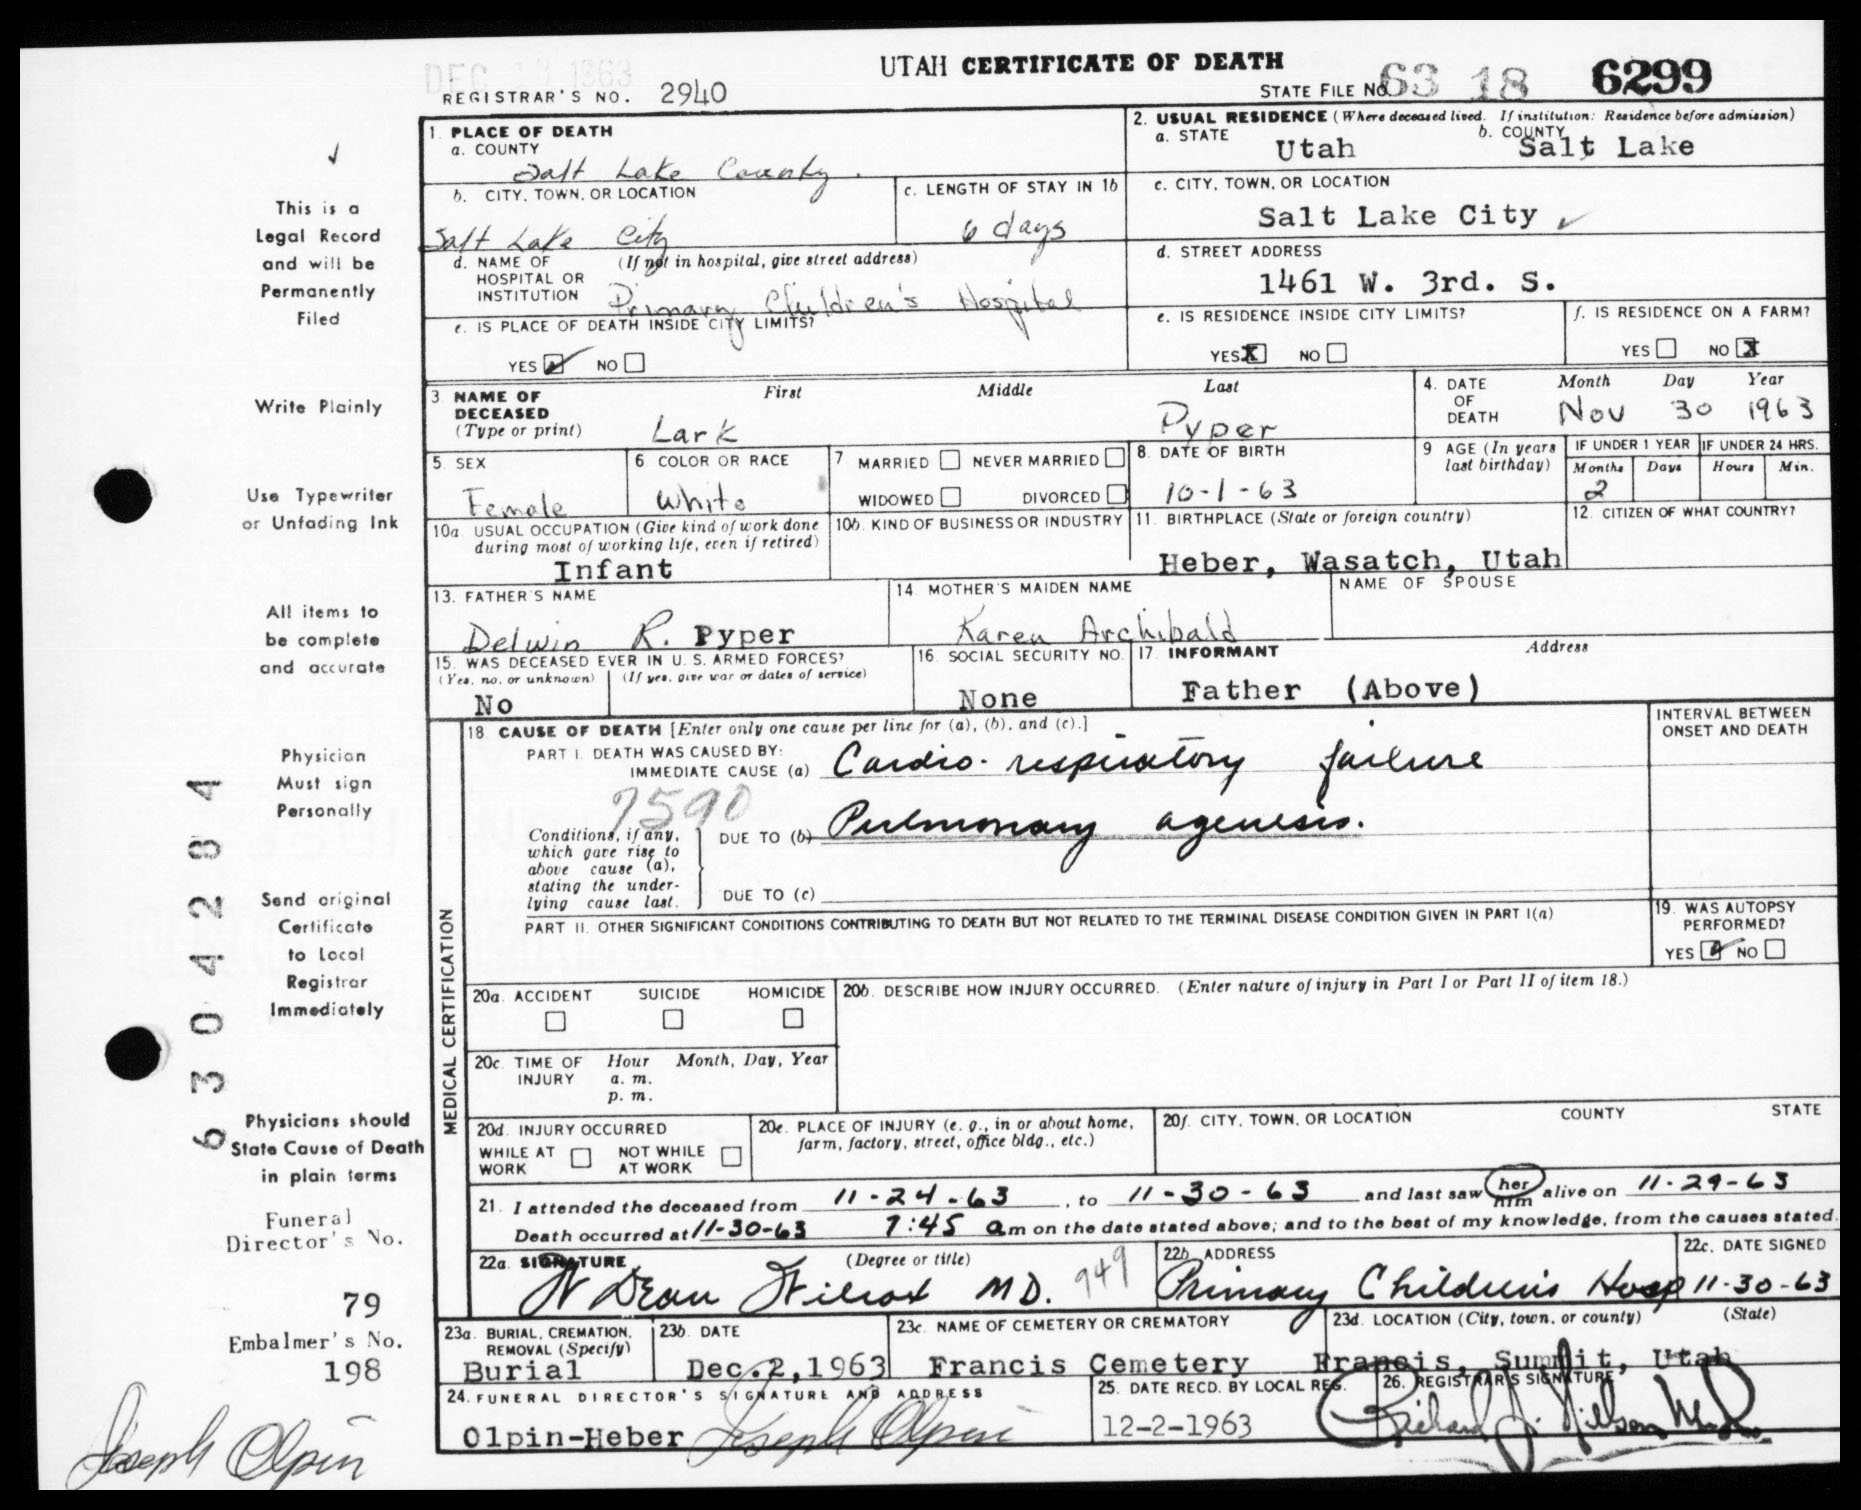 UTAH CERTIFICATE OF DEATH
DEC 1963
REGISTRAR'S NO. 2940
STATE FILE NO. 63 18 6299
1. PLACE OF DEATH
a. COUNTY
Salt Lake County.
2. USUAL RESIDENCE (Where deceased lived. If institution: Residence before admission)
a. STATE Utah b. COUNTY Salt Lake
b. CITY, TOWN, OR LOCATION
Salt Lake City
c. LENGTH OF STAY IN 1b
6 days
c. CITY, TOWN, OR LOCATION
Salt Lake City
d. NAME OF HOSPITAL OR INSTITUTION (If not in hospital, give street address)
Primary Children's Hospital
d. STREET ADDRESS
1461 W. 3rd. S.
e. IS PLACE OF DEATH INSIDE CITY LIMITS?
YES NO
e. IS RESIDENCE INSIDE CITY LIMITS?
YES X NO
f. IS RESIDENCE ON A FARM?
YES NO X
3 NAME OF DECEASED (Type or print)
First Middle Last
Lark Pyper
4. DATE OF DEATH
Month Day Year
Nov 30 1963
5. SEX
Female
6. COLOR OR RACE
White
7 MARRIED NEVER MARRIED
WIDOWED DIVORCED
8. DATE OF BIRTH
10-1-63
9 AGE (In years last birthday)
IF UNDER 1 YEAR IF UNDER 24 HRS.
Months Days Hours Min.
2
10a. USUAL OCCUPATION (Give kind of work done during most of working life, even if retired)
Infant
10b. KIND OF BUSINESS OR INDUSTRY
11. BIRTHPLACE (State or foreign country)
Heber, Wasatch, Utah
12. CITIZEN OF WHAT COUNTRY?
13. FATHER'S NAME
Delwin R. Pyper
14 MOTHER'S MAIDEN NAME
Karen Archibald
NAME OF SPOUSE
15. WAS DECEASED EVER IN U. S. ARMED FORCES?
(Yes, no, or unknown) (If yes, give war or dates of service)
No
16. SOCIAL SECURITY NO.
None
17. INFORMANT Address
Father (Above)
MEDICAL CERTIFICATION
18. CAUSE OF DEATH [Enter only one cause per line for (a), (b), and (c).]
INTERVAL BETWEEN ONSET AND DEATH
PART I. DEATH WAS CAUSED BY:
IMMEDIATE CAUSE (a) Cardio-respiratory failure
7590
Conditions, if any, which gave rise to above cause (a), stating the underlying cause last.
DUE TO (b) Pulmonary agenesis.
DUE TO (c)
PART II. OTHER SIGNIFICANT CONDITIONS CONTRIBUTING TO DEATH BUT NOT RELATED TO THE TERMINAL DISEASE CONDITION GIVEN IN PART I(a)
19. WAS AUTOPSY PERFORMED?
YES NO
20a. ACCIDENT SUICIDE HOMICIDE
20b. DESCRIBE HOW INJURY OCCURRED. (Enter nature of injury in Part I or Part II of item 18.)
20c. TIME OF INJURY Hour Month, Day, Year
a. m.
p. m.
20d. INJURY OCCURRED
WHILE AT WORK NOT WHILE AT WORK
20e. PLACE OF INJURY (e. g., in or about home, farm, factory, street, office bldg., etc.)
20f. CITY, TOWN, OR LOCATION COUNTY STATE
21. I attended the deceased from 11-24-63, to 11-30-63 and last saw her him alive on 11-29-63
Death occurred at 11-30-63 7:45 a m on the date stated above; and to the best of my knowledge, from the causes stated.
22a. SIGNATURE (Degree or title)
W Dean Wilcox MD. 949
22b. ADDRESS
Primary Children's Hosp
22c. DATE SIGNED
11-30-63
23a. BURIAL, CREMATION, REMOVAL (Specify)
Burial
23b. DATE
Dec. 2, 1963
23c. NAME OF CEMETERY OR CREMATORY
Francis Cemetery
23d. LOCATION (City, town, or county) (State)
Francis, Summit, Utah
24. FUNERAL DIRECTOR'S SIGNATURE AND ADDRESS
Olpin-Heber Joseph Olpin
25. DATE RECD. BY LOCAL REG.
12-2-1963
26. REGISTRAR'S SIGNATURE
Richard J. Nilson
This is a
Legal Record
and will be
Permanently
Filed
Write Plainly
Use Typewriter
or Unfading Ink
All items to
be complete
and accurate
Physician
Must sign
Personally
Send original
Certificate
to Local
Registrar
Immediately
Physicians should
State Cause of Death
in plain terms
Funeral
Director's No.
79
Embalmer's No.
198
Joseph Olpin
6304284